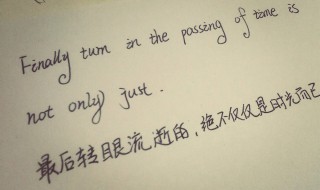 Finally turn in the passing of time is
not only just.
最后转眼流逝的,绝不仅仅是时光而已